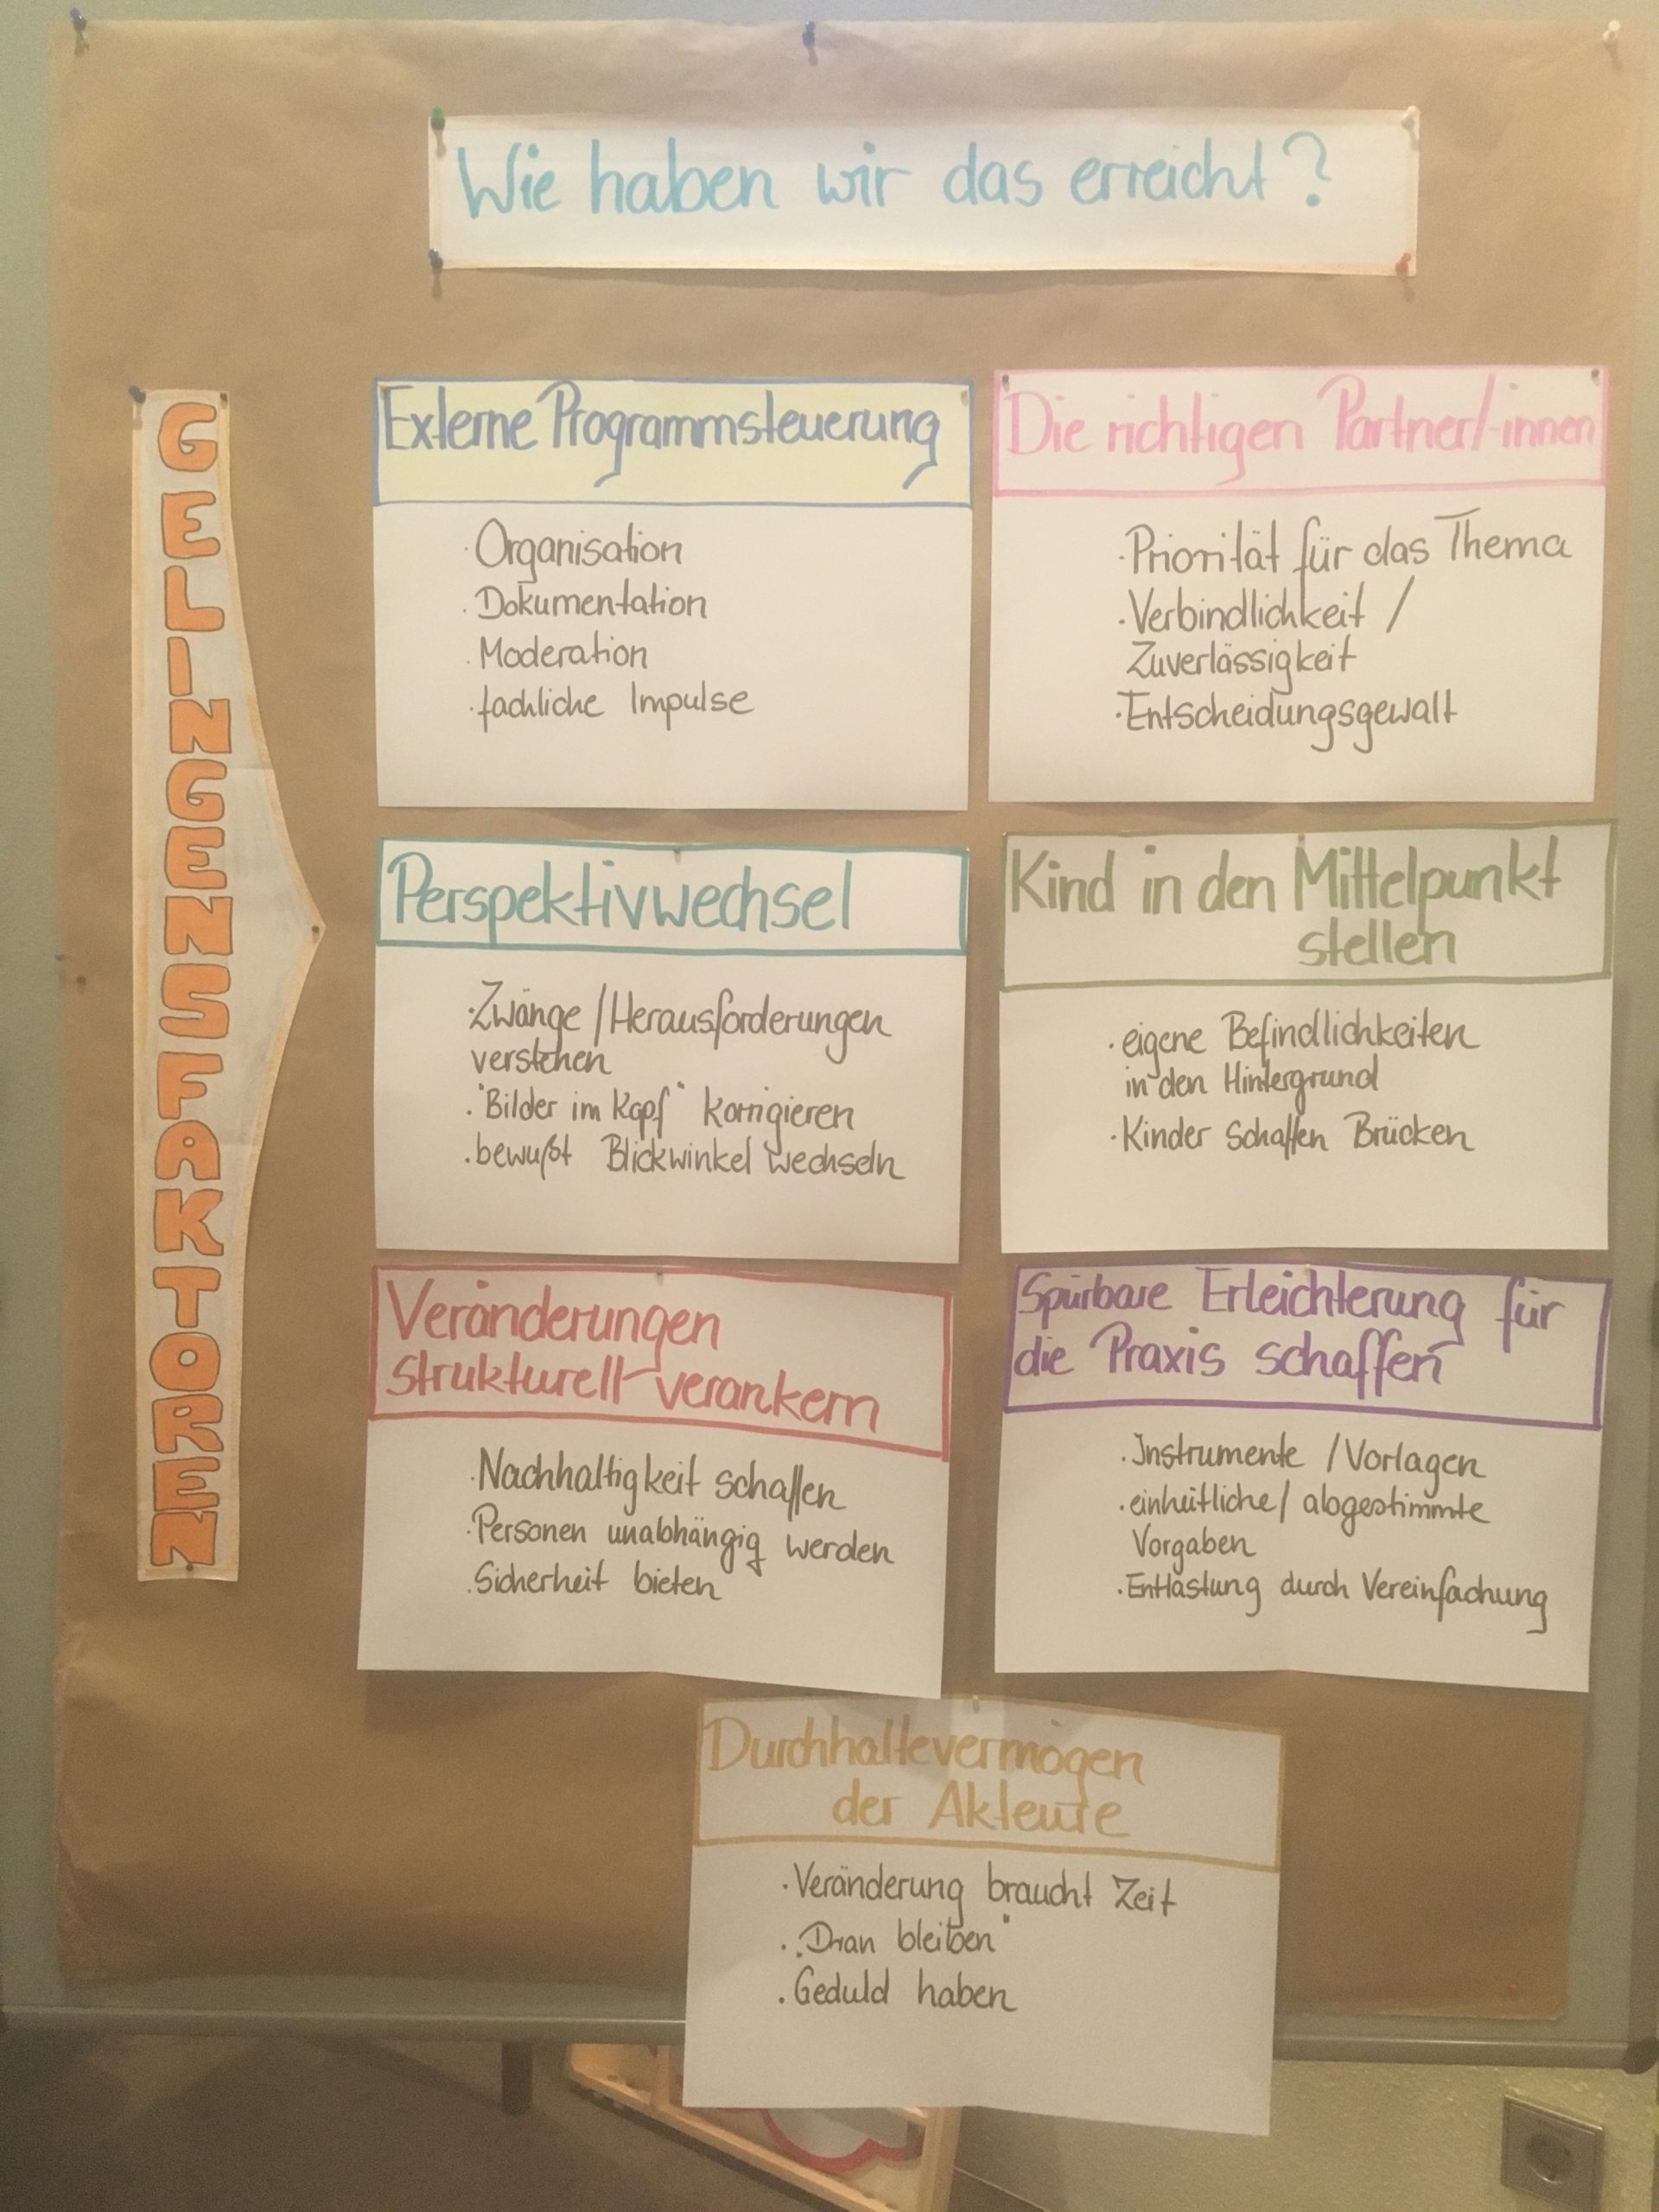 Wie haben wir das erreicht?
GELINGENSFAKTOREN
Externe Programmsteuerung
· Organisation
· Dokumentation
· Moderation
· fachliche Impulse
Die richtigen Partner/-innen
· Priorität für das Thema
· Verbindlichkeit /
Zuverlässigkeit
· Entscheidungsgewalt
Perspektivwechsel
· Zwänge / Herausforderungen
verstehen
· "Bilder im Kopf" korrigieren
· bewußt Blickwinkel wechseln
Kind in den Mittelpunkt
stellen
· eigene Befindlichkeiten
in den Hintergrund
· Kinder schaffen Brücken
Veränderungen
strukturell verankern
· Nachhaltigkeit schaffen
· Personen unabhängig werden
· Sicherheit bieten
Spürbare Erleichterung für
die Praxis schaffen
· Instrumente / Vorlagen
· einheitliche / abgestimmte
Vorgaben
· Entlastung durch Vereinfachung
Durchhaltevermögen
der Akteure
· Veränderung braucht Zeit
· „Dran bleiben"
· Geduld haben